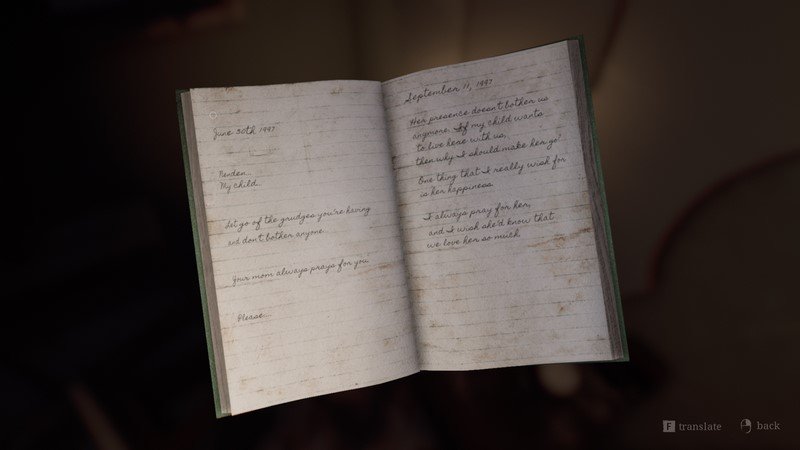 June 30th 1997
Nenden...
My child...
Let go of the grudges you're having
and don't bother anyone...
Your mom always prays for you.
Please...
September 11, 1997
Her presence doesn't bother us
anymore. If my child wants
to live here with us,
then why I should make her go?
One thing that I really wish for
is her happiness.
I always pray for her,
and I wish she'd know that
we love her so much
F translate
back